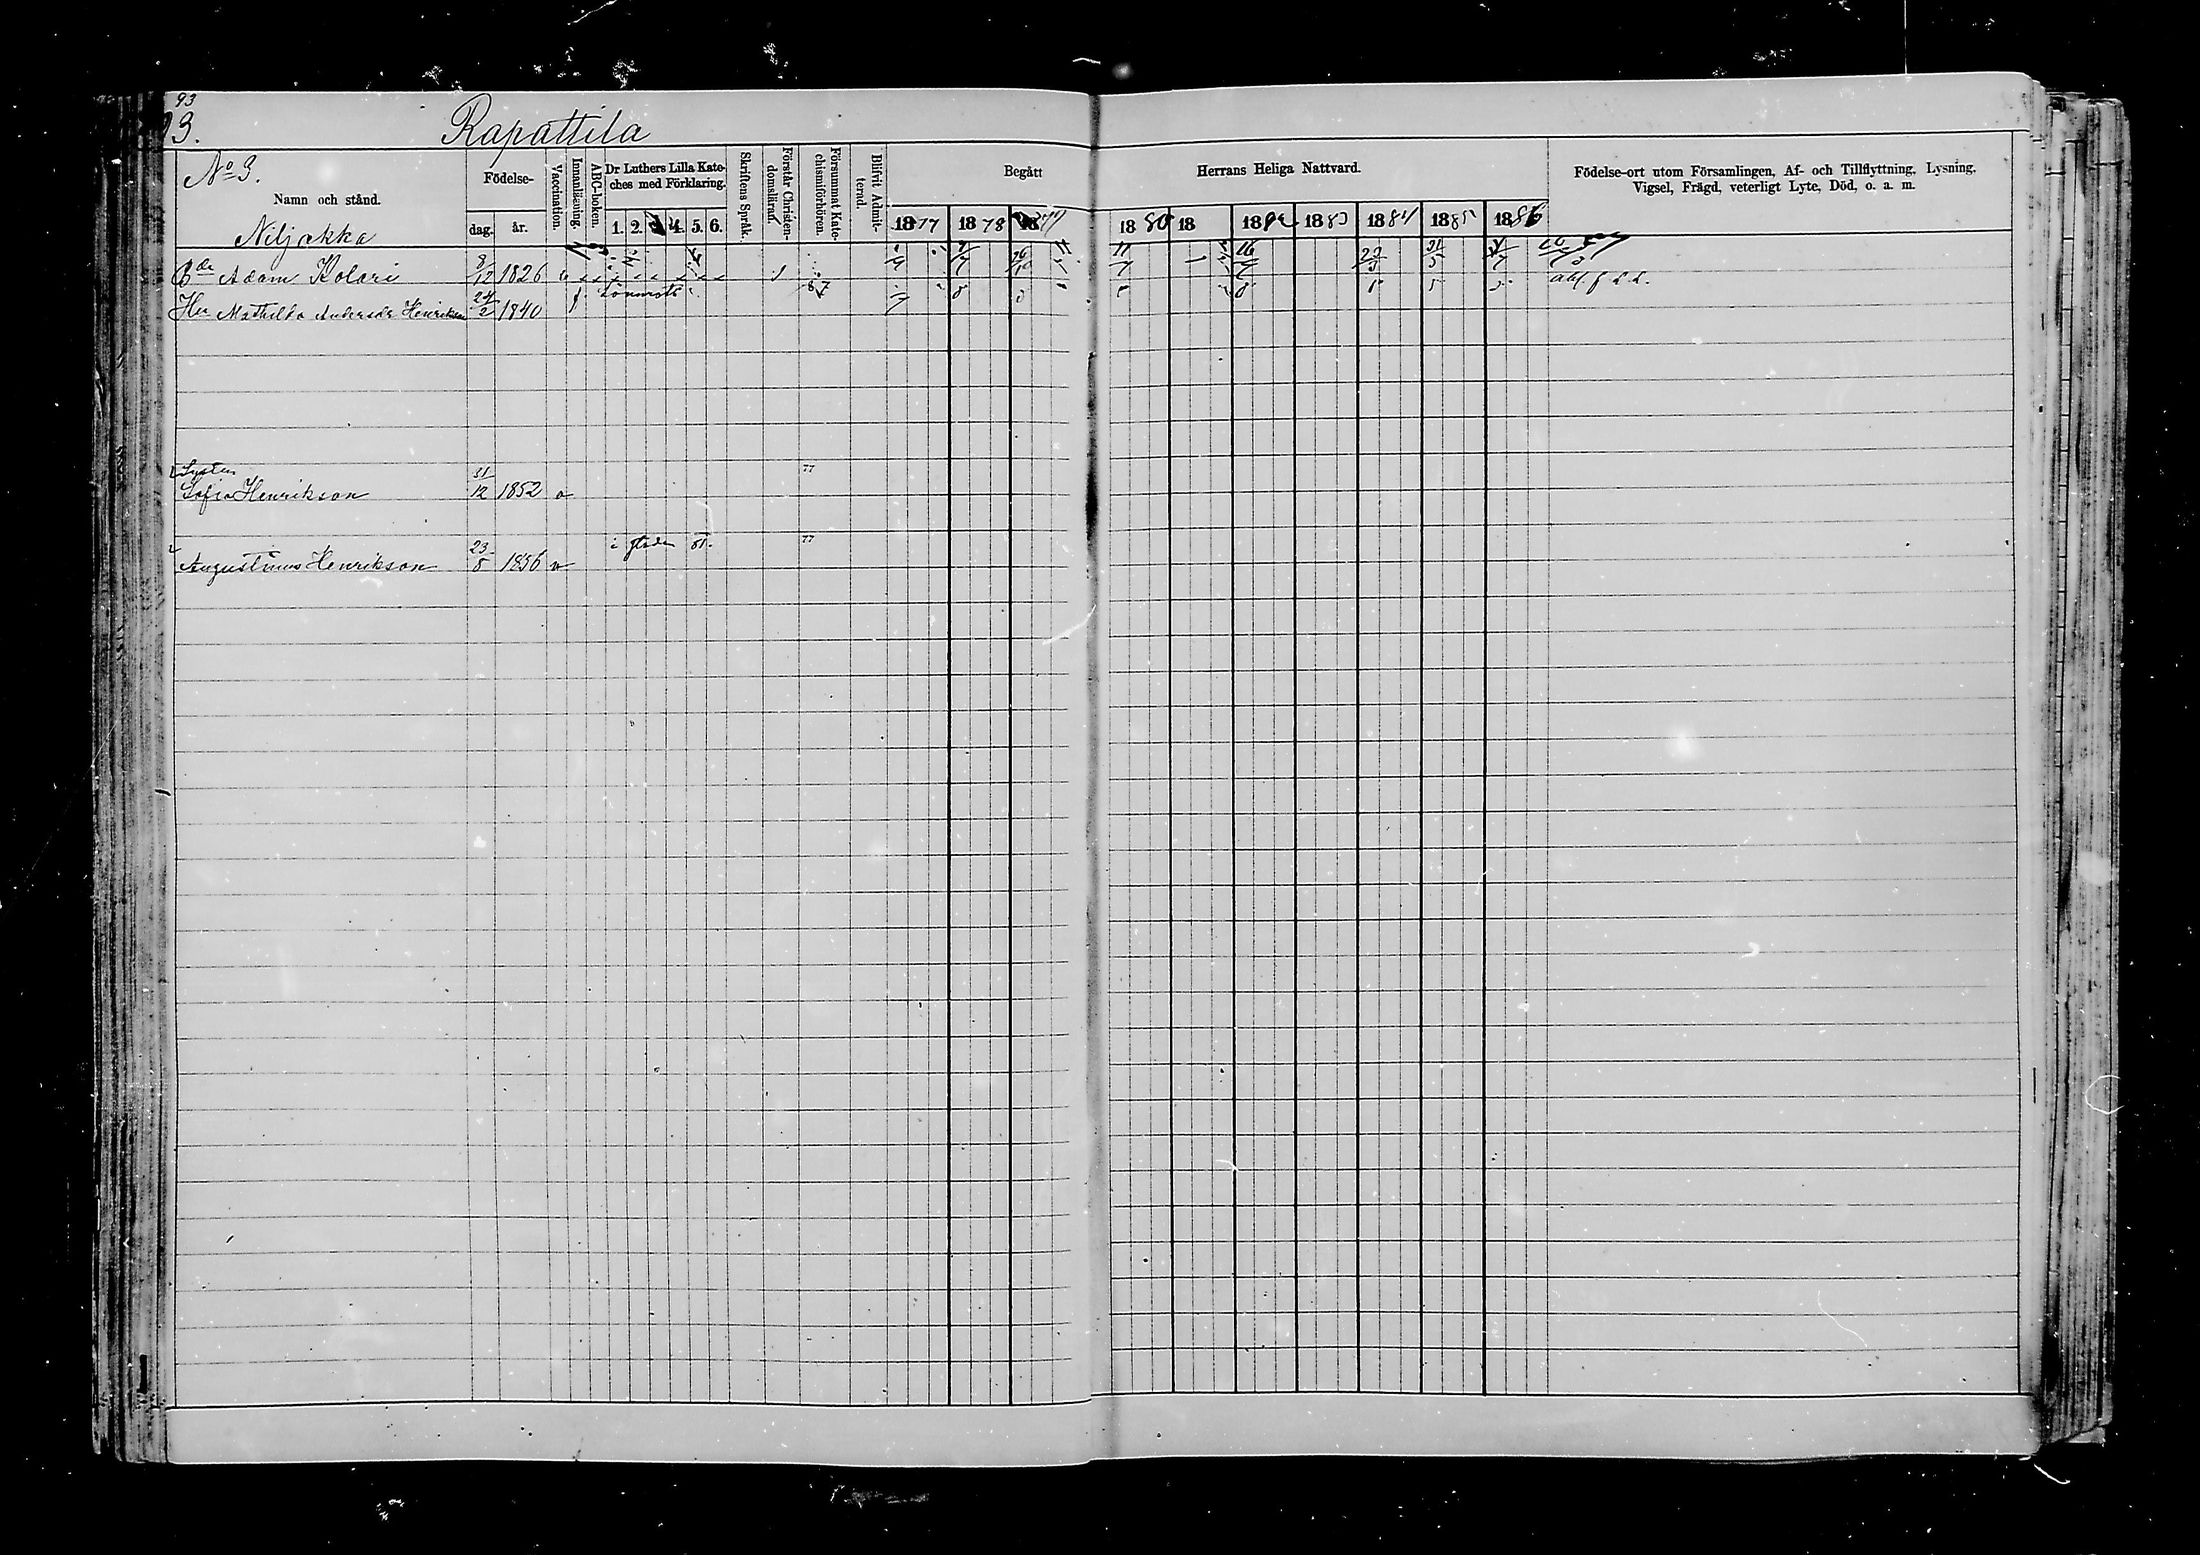 93
93.
Rapattila
No 3.
Namn och stånd.
Födelse-
dag. år.
Vaccination.
Innanläsning.
ABC-boken.
Dr Luthers Lilla Kate-
ches med Förklaring.
1. 2. 3. 4. 5. 6.
Skriftens Språk.
Förstår Christen-
domsläran.
Försummat Kate-
chismiförhören.
Blifvit Admit-
terad.
Begått
Herrans Heliga Nattvard.
1877 1878 1879 1880 18 1882 1883 1884 1885 1886
Födelse-ort utom Församlingen, Af- och Tillflyttning, Lysning,
Vigsel, Frägd, veterligt Lyte, Död, o. a. m.
Niljakka
Bde Adam Kolari 8/12 1826
Hu Mathilda Andersdr Henrikson 24/2 1840
Syster
Sofia Henrikson 31/12 1852 77
Augustinus Henrikson 23/8 1856 i staden 81. 77